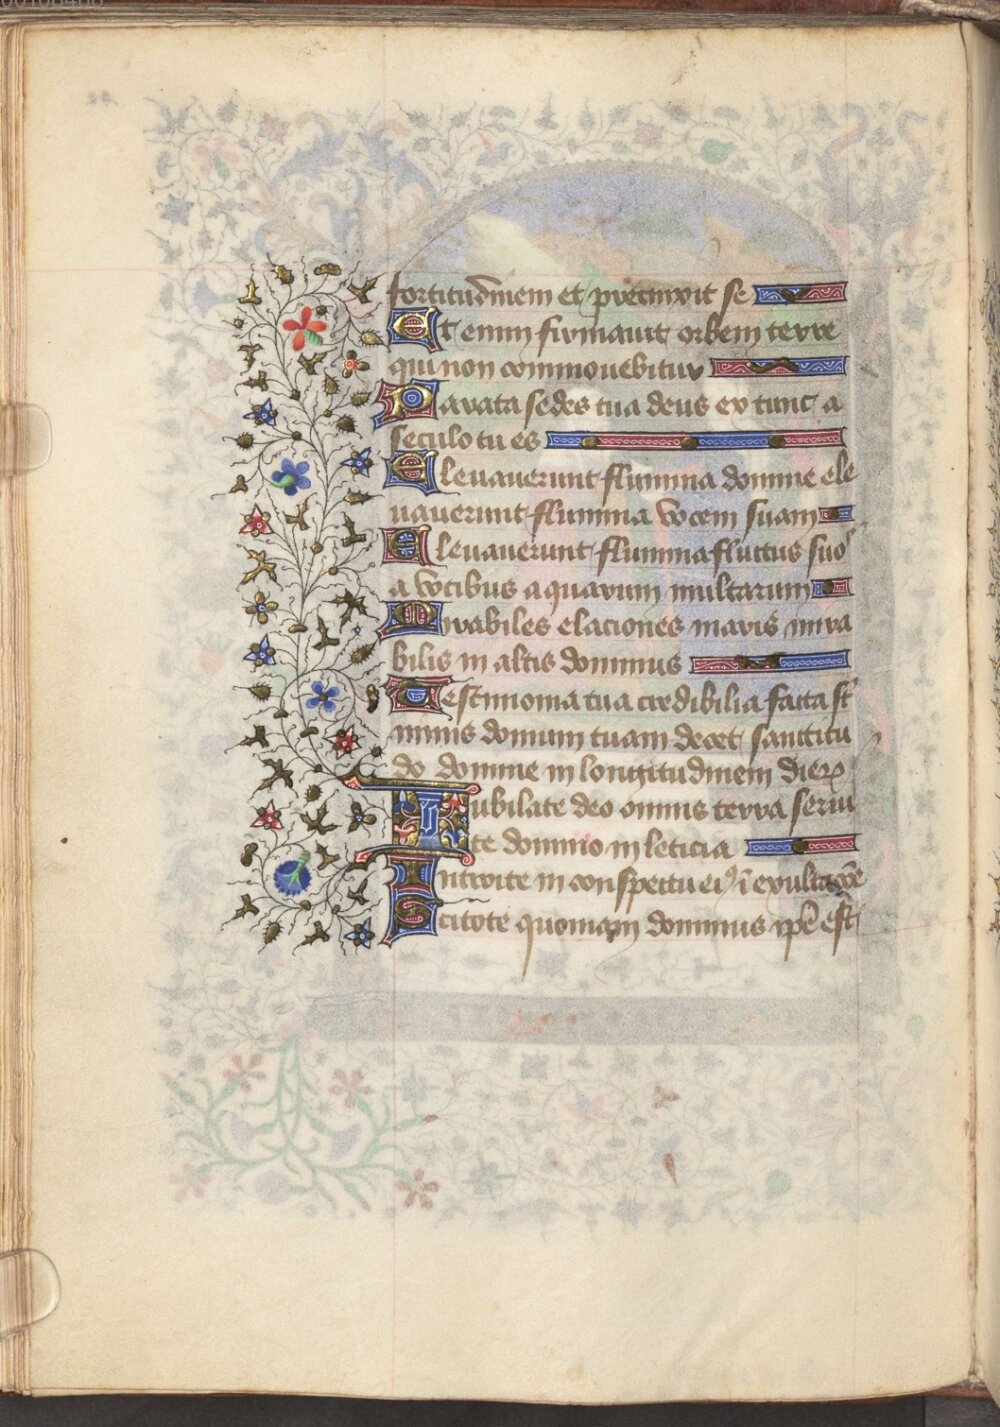 fortitudinem et precinxit se
Et enim firmauit orbem terre
qui non commouebitur
Parata sedes tua deus ex tunc a
seculo tu es
Eleuauerunt flumina domine ele
uauerunt flumina vocem suam
Eleuauerunt flumina fluctus suos
a vocibus aquarum multarum
Mirabiles elaciones maris mira
bilis in altis dominus
Testimonia tua credibilia facta st̄
nimis domum tuam decet sanctitu
do domine in longitudinem dierꝝ
Iubilate deo omnis terra serui
te domino in leticia
Introite in conspectu eiꝰ ī exultacōe
Scitote quoniam dominus ip̄e est